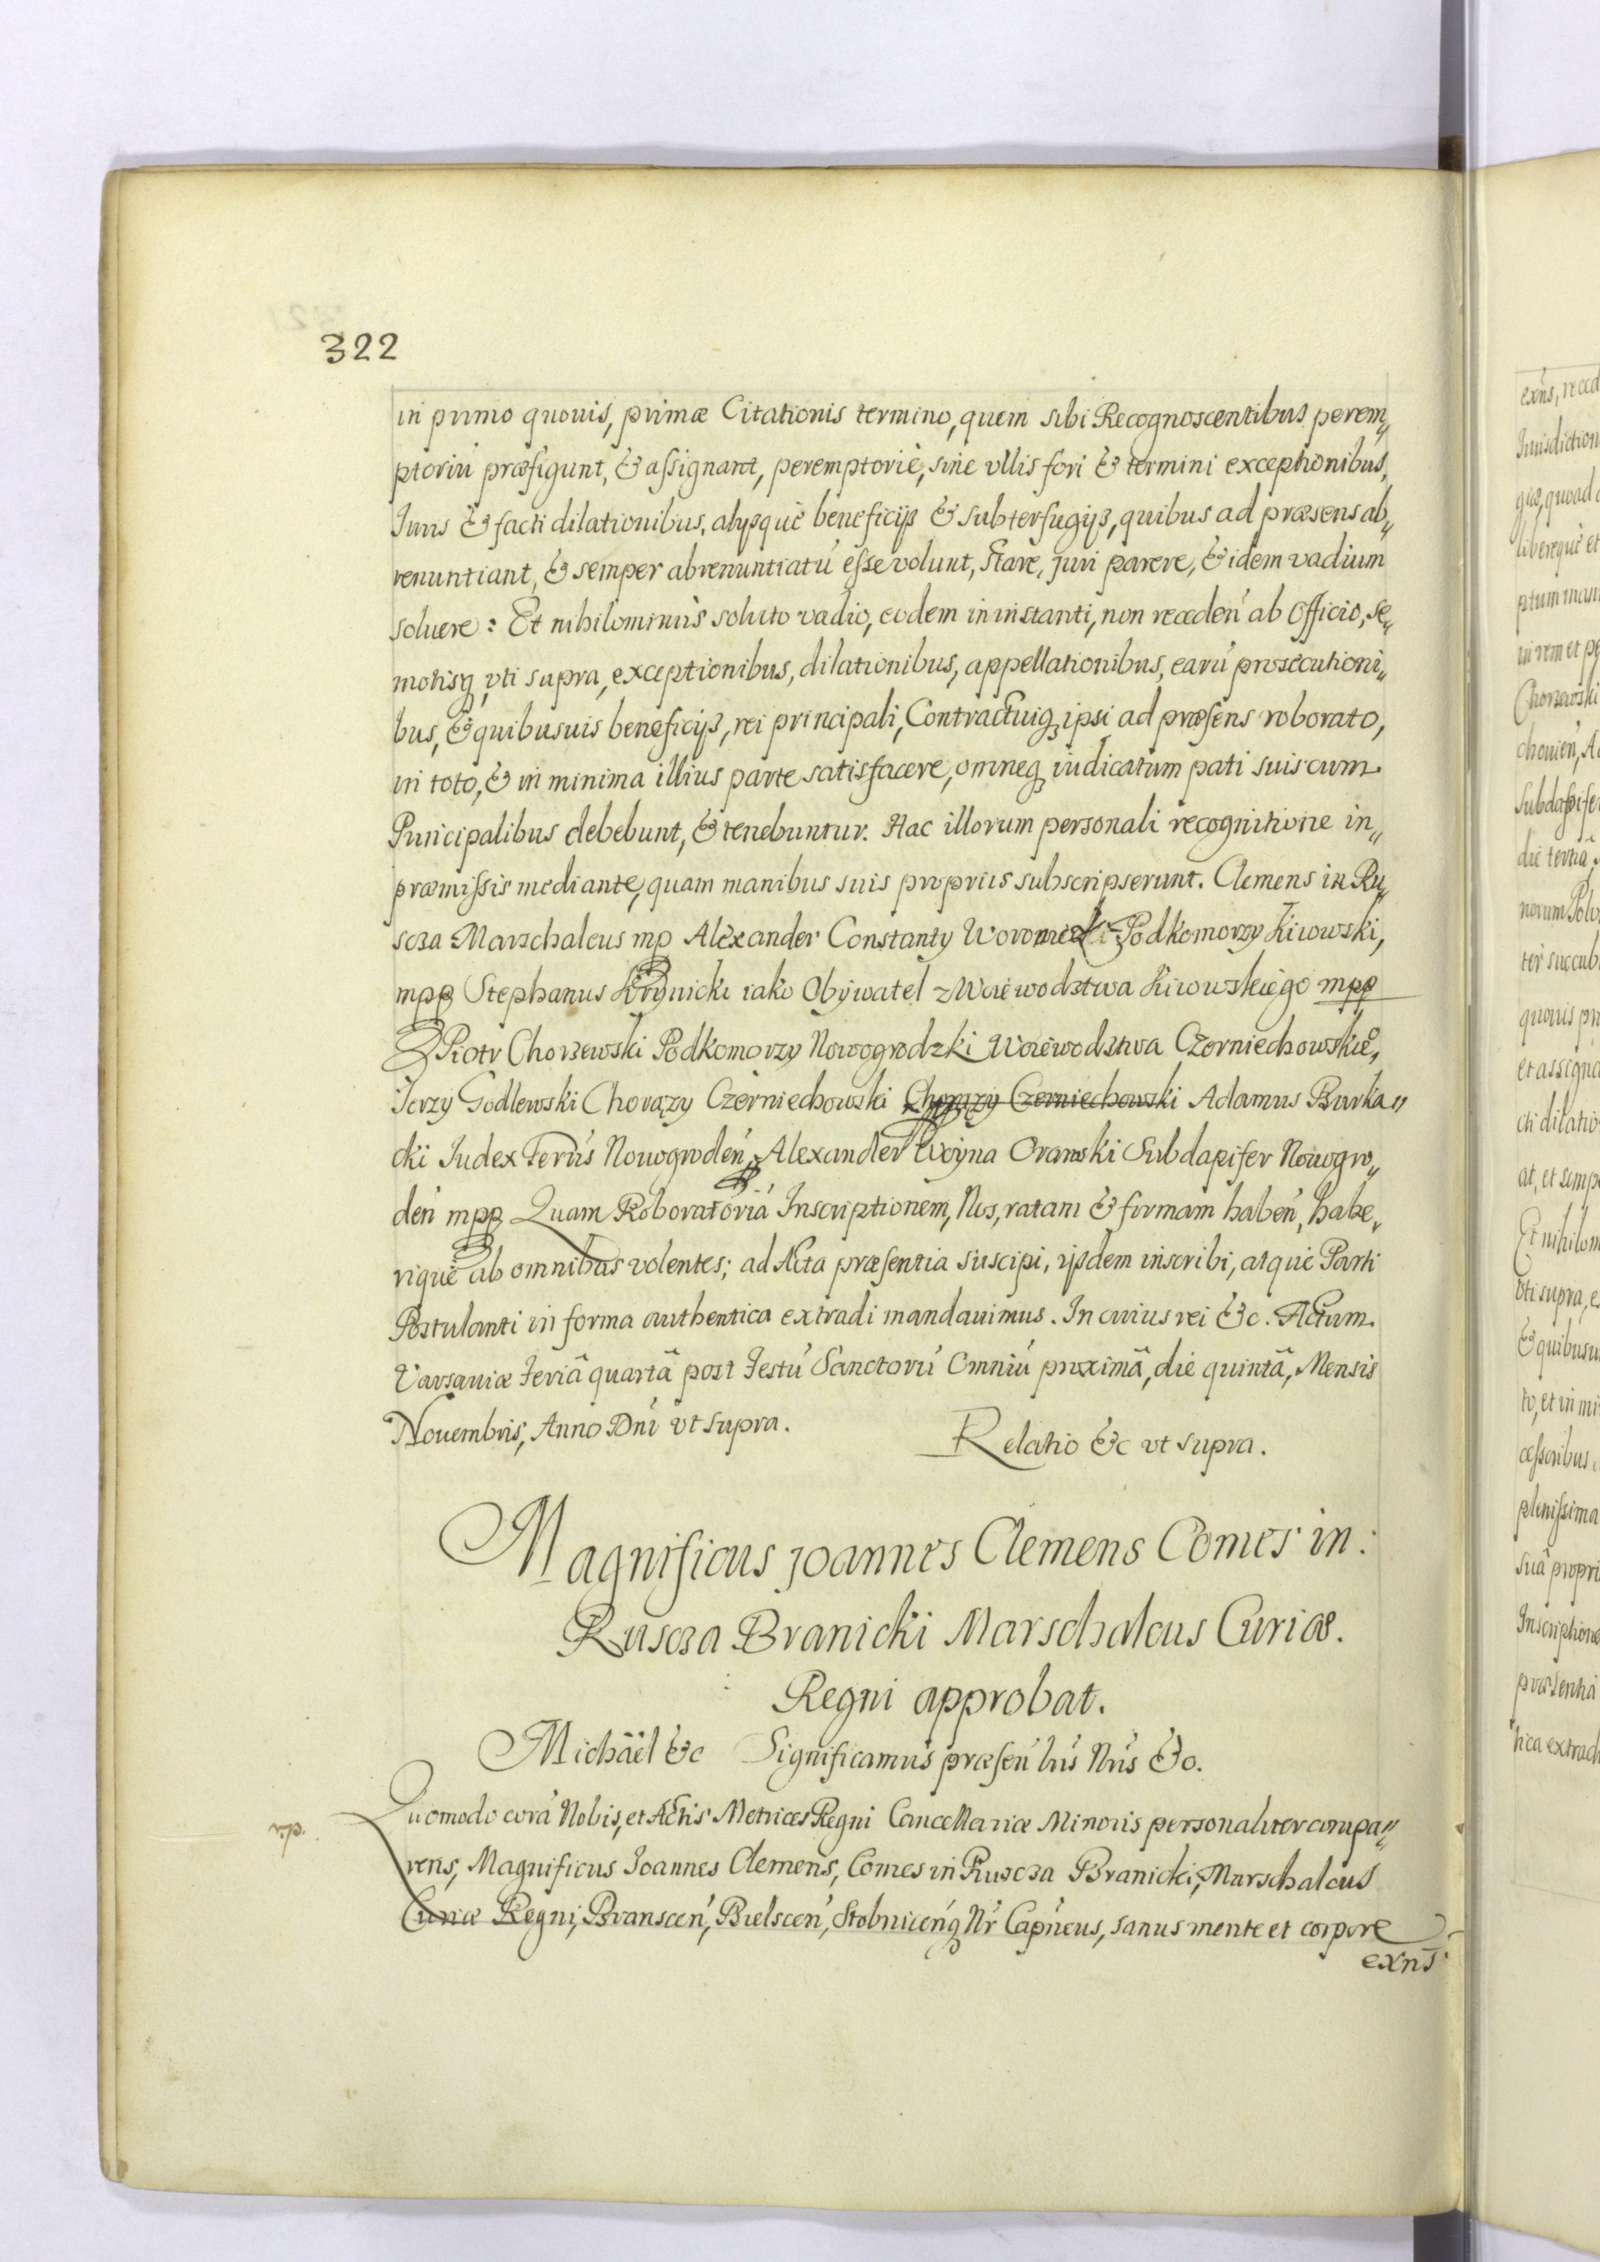 322
in primo quouis, primæ Citationis termino, quem sibi Recognoscentibus perem„
ptoriú præfigunt, & assignant, peremptoriè, sine vllis fori & termini exceptionibus,
Iuris & facti dilationibus, alysquè beneficijs & subterfugijs, quibus ad præsens ab„
renuntiant, & semper abrenuntiatú esse volunt, stare, juri parere, & idem vadium
soluere: Et nihilominùs soluto vadio, eodem in instanti, non recedeń ab Officio, se„
motisq, vti supra, exceptionibus, dilationibus, appellationibus, earú prosecutioni„
bus, & quibusuis beneficijs, rei principali, Contractuiq ipsi ad præsens roborato,
in toto, & in minima illius parte satisfacere, omneq iudicatum pati suis cum
Principalibus debebunt, & tenebuntur. Hac illorum personali recognitione in„
præmissis mediante, quam manibus suis proprijs subscripserunt. Clemens in Ru„
scza Marschalcus mp Alexander Constanty Woronicz Podkomorzy Kiiowski,
mpp Stephanus Krynicki iako Obÿwatel z Woiewodztwa Kiiowskiego mpp
Piotr Chorzewski Podkomorzy Nowogrodzki Woiewodztwa Czerniechowskie,
Ierzy Godlewski Chorązy Czerniechowski Chorązy Czerniechowski Adamus Burka„
cki Iudex Terrús Nowogrodeń, Alexander Woyna Oranski Subdapifer Nowogro„
deń mpp Quam Roboratoriá Inscriptionem, Nos, ratam & firmam habeń, habe„
riquè ab omnibus volentes; ad Acta præsentia suscipi, ijsdem inscribi, atquè Parti
Postulanti in forma authentica extradi mandauimus. In cuius rei &c. Actum
Varsauiæ Feriâ quartâ post Festú Sanctorú Omniú proximâ, die quintâ, Mensis
Nouembris, Anno Dńi vt supra.
Relatio &c vt supra.
Magnificus Joannes Clemens Comes in
Ruscza Branicki Marschalcus Curiæ
Regni approbat.
Michäel &c Significamus præseń bus Nŕis &c.
r.p.
Quomodo corá Nobis, et Actis Metrices Regni Cancellariæ Minoris personaliter compa„
rens, Magnificus Ioannes Clemens, Comes in Ruscza Branicki, Marschalcus
Curiæ Regni, Bransceń, Bielsceń, Stobniceńq Nŕ Capńeus, sanus mente et corpore
exńs